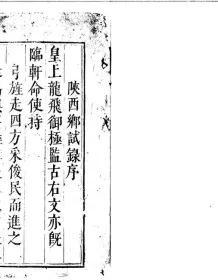 陝西鄉試錄序
皇上龍飛御極監古右文亦既
臨軒命使持
弓旌走四方采俊民而進之